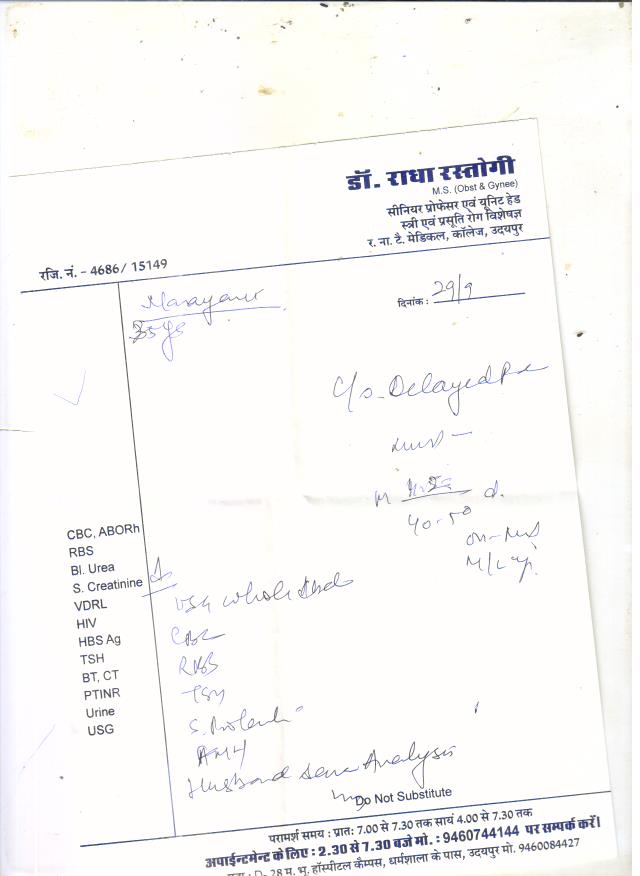 डॉ. राधा रस्तोगी
M.S. (Obst & Gynee)
सीनियर प्रोफेसर एवं यूनिट हेड
स्त्री एवं प्रसूति रोग विशेषज्ञ
र. ना. टै. मेडिकल, कॉलेज, उदयपुर
रजि. नं. - 4686/ 15149
दिनांक : 29/9
35 Ys
C/o Delayed
40-50
CBC, ABORh
RBS
Bl. Urea
S. Creatinine
VDRL
HIV
HBS Ag
TSH
BT, CT
PTINR
Urine
USG
USG Whole Abd
CBC
RBS
TSH
S. Prolactin
AMH
Husband Semen Analysis
Do Not Substitute
परामर्श समय : प्रात: 7.00 से 7.30 तक सायं 4.00 से 7.30 तक
अपाईन्टमेन्ट के लिए : 2.30 से 7.30 बजे मो. : 9460744144 पर सम्पर्क करें।
D- 28 म. भू. हॉस्पीटल कैम्पस, धर्मशाला के पास, उदयपुर मो. 9460084427